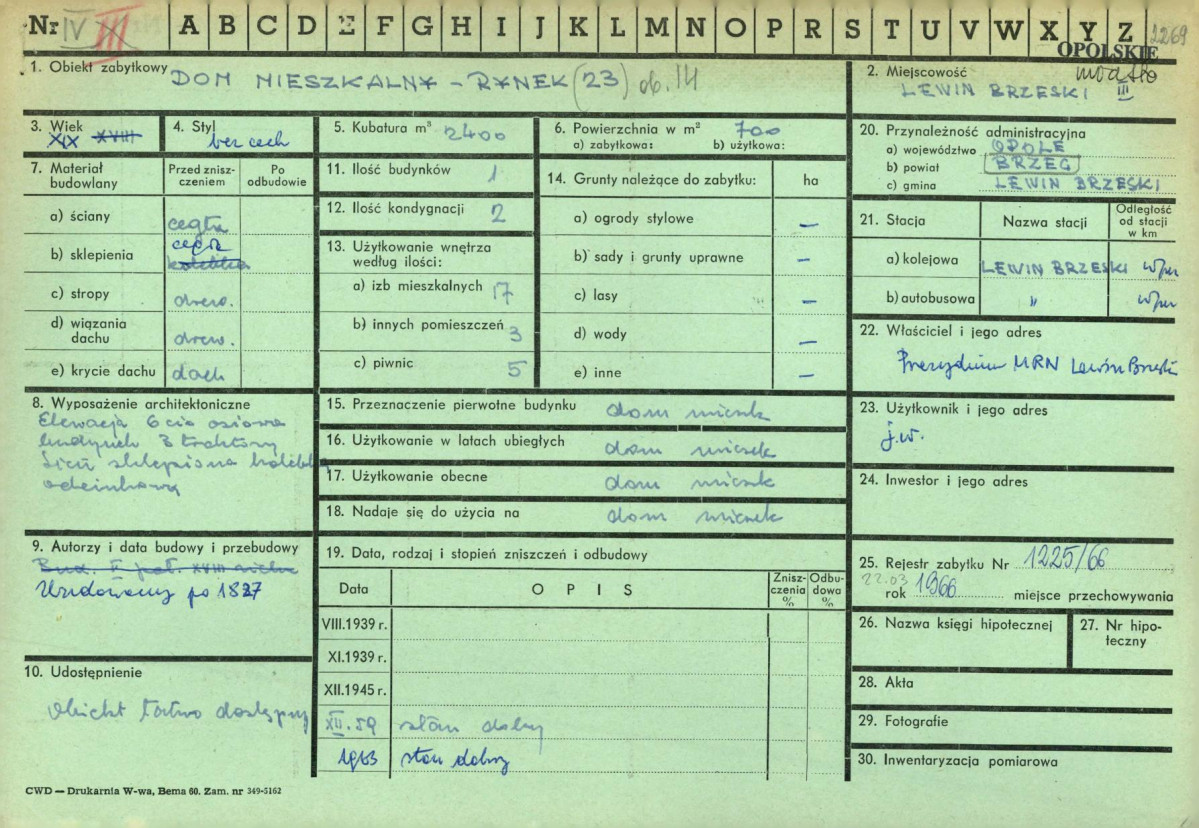 Nr IV III A B C D E F G H I J K L M N O P R S T U V W X Y Z 2269
OPOLSKIE
1. Obiekt zabytkowy DOM MIESZKALNY – RYNEK (23) ob. 14
2. Miejscowość
LEWIN BRZESKI III
3. Wiek
XIX XVIII
4. Styl
bez cech
5. Kubatura m³ 2400
6. Powierzchnia w m² 700
a) zabytkowa: b) użytkowa:
7. Materiał budowlany
Przed zniszczeniem
Po odbudowie
a) ściany cegła
b) sklepienia cegła
kolebka
c) stropy drew.
d) wiązania dachu drew.
e) krycie dachu dach
8. Wyposażenie architektoniczne
Elewacja 6cio osiowa
budynek 3 traktowy
Sień sklepiona kolebką
odcinkową
9. Autorzy i data budowy i przebudowy
Bud. II poł. XVIII wieku
po 1827
10. Udostępnienie
Obiekt łatwo dostępny
11. Ilość budynków 1
12. Ilość kondygnacji 2
13. Użytkowanie wnętrza według ilości:
a) izb mieszkalnych 17
b) innych pomieszczeń 3
c) piwnic 5
14. Grunty należące do zabytku: ha
a) ogrody stylowe –
b) sady i grunty uprawne –
c) lasy –
d) wody –
e) inne –
15. Przeznaczenie pierwotne budynku dom mieszk
16. Użytkowanie w latach ubiegłych dom mieszk
17. Użytkowanie obecne dom mieszk
18. Nadaje się do użycia na dom mieszk
19. Data, rodzaj i stopień zniszczeń i odbudowy
Data O P I S Zniszczenia % Odbudowa %
VIII.1939 r.
XI.1939 r.
XII.1945 r.
XII.59 stan dobry
1963 stan dobry
20. Przynależność administracyjna
a) województwo OPOLE
b) powiat BRZEG
c) gmina LEWIN BRZESKI
21. Stacja Nazwa stacji Odległość od stacji w km
a) kolejowa LEWIN BRZESKI
b) autobusowa "
22. Właściciel i jego adres
Prezydium MRN Lewin Brzeski
23. Użytkownik i jego adres
j.w.
24. Inwestor i jego adres
25. Rejestr zabytku Nr 1225/66
22.03
rok 1966 miejsce przechowywania
26. Nazwa księgi hipotecznej
27. Nr hipoteczny
28. Akta
29. Fotografie
30. Inwentaryzacja pomiarowa
CWD — Drukarnia W-wa, Bema 60. Zam. nr 349-5162